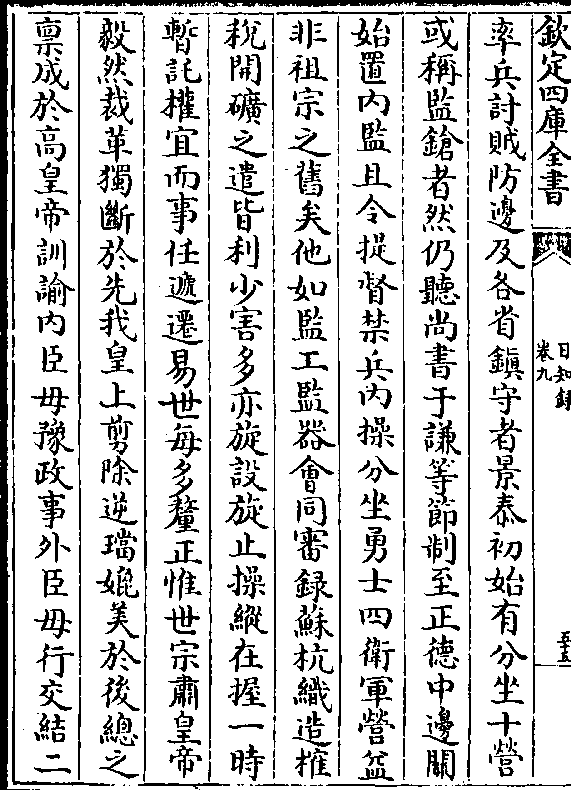 欽定四庫全書
日知錄
卷九
五十五
率兵討賊防邊及各省鎮守者景泰初始有分坐十營
或稱監鎗者然仍聽尚書于謙等節制至正德中邊關
始置内監且令提督禁兵内操分坐勇士四衛軍營益
非祖宗之舊矣他如監工監器會同審録蘇杭織造榷
稅開礦之遣皆利少害多亦旋設旋止操縱在握一時
暫託權宜而事任遞遷易世每多釐正惟世宗肅皇帝
毅然裁革獨斷於先我皇上剪除逆璫媲美於後總之
禀成於高皇帝訓諭内臣毋豫政事外臣毋行交結二